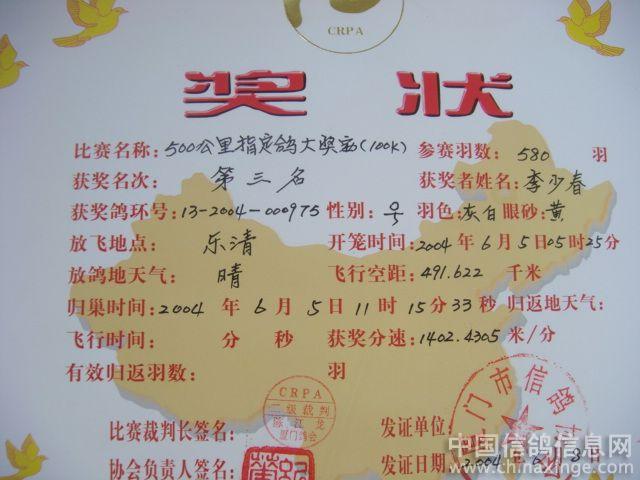 CRPA
奖 状
比赛名称: 500公里指定鸽大奖赛(100K) 参赛羽数: 580 羽
获奖名次: 第三名 获奖者姓名: 李少春
获奖鸽环号: 13-2004-000975 性别: 羽色: 灰白 眼砂: 黄
放飞地点: 乐清 开笼时间: 2004 年 6 月 5 日 05 时 25 分
放鸽地天气: 晴 飞行空距: 491.622 千米
归巢时间: 2004 年 6 月 5 日 11 时 15 分 33 秒 归返地天气:
飞行时间: 分 秒 获奖分速: 1402.4305 米/分
有效归返羽数: 羽
CRPA
二级裁判
陈江龙
厦门鸽会
比赛裁判长签名: 发证单位:
厦门市信鸽
协会负责人签名: 发证日期: 2004 年 6 月
中国信鸽信息网
www.chinaxinge.com